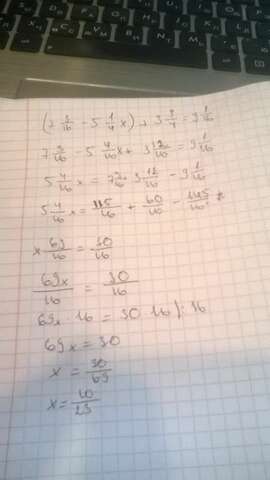 (7 3/16 - 5 1/4 x) + 3 3/4 = 9 1/16
7 3/16 - 5 4/16 x + 3 12/16 = 9 1/16
5 4/16 x = 7 3/16 3 12/16 - 9 1/16
5 4/16 x = 115/16 + 60/16 - 145/16
x 69/16 = 30/16
69x/16 = 30/16
69x · 16 = 30 · 16 | : 16
69x = 30
x = 30/69
x = 10/23